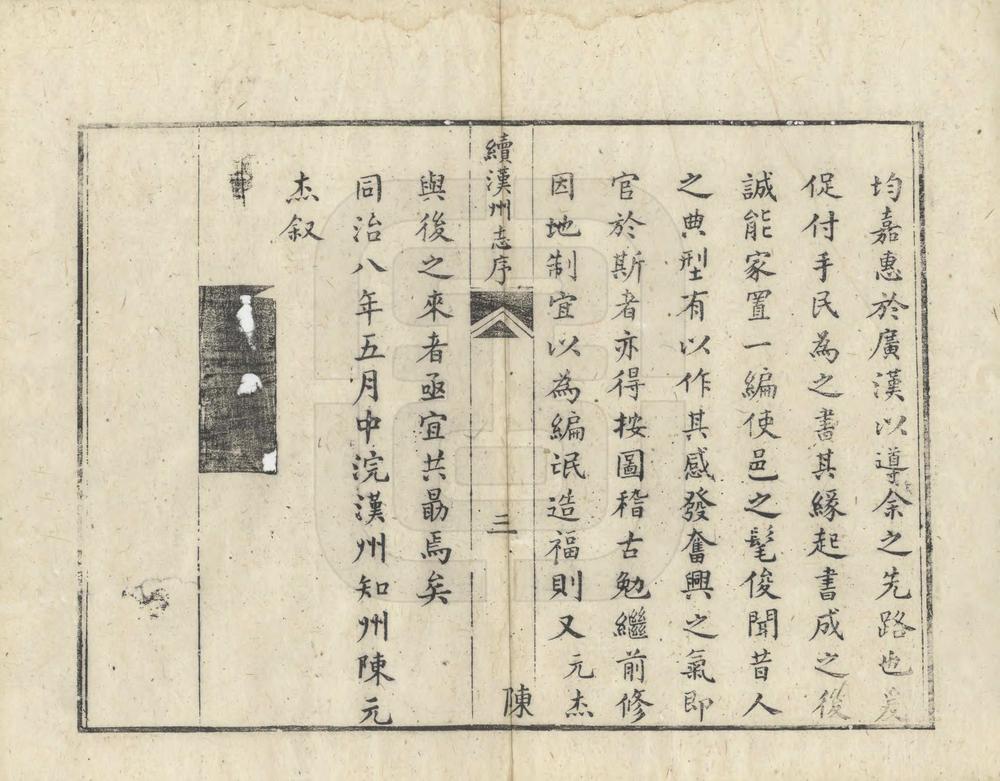 均嘉惠於廣漢以導余之先路也爰
促付手民為之書其緣起書成之後
誠能家置一編使邑之髦俊聞昔人
之典型有以作其感發奮興之氣即
官於斯者亦得按圖稽古勉繼前修
因地制宜以為編氓造福則又元杰
續漢州志序
三
陳
與後之來者亟宜共勗焉矣
同治八年五月中浣漢州知州陳元
杰叙